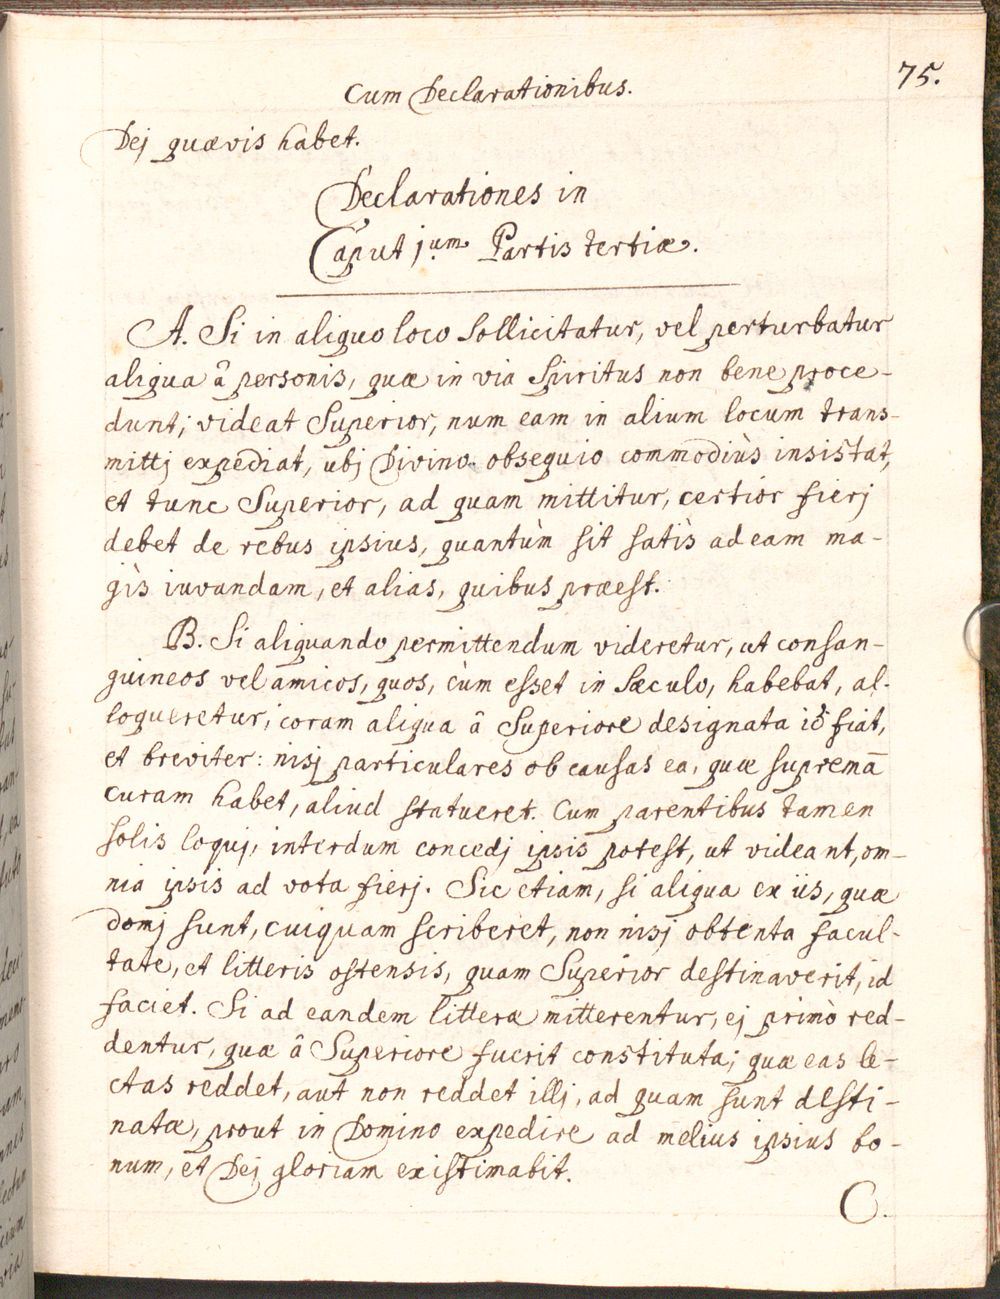 Cum Declarationibus.
75.
Dej quævis habet.
Declarationes in
Caput j.um Partis tertiæ.
A. Si in aliquo loco sollicitatur, vel perturbatur
aliqua â personis, quæ in via Spiritus non bene proce-
dunt; videat Superior, num eam in alium locum trans-
mittj expediat, ubj Divino obsequio commodiùs insistat,
et tunc Superior, ad quam mittitur, certior fierj
debet de rebus ipsius, quantùm sit satìs ad eam ma-
gìs iuvandam, et alias, quibus præest.
B. Si aliquando permittendum videretur, ut consan-
guineos vel amicos, quos, cùm esset in sæculo, habebat, al-
loqueretur, coram aliqua â Superiore designata id fiat,
et breviter: nisj particulares ob causas ea, quæ supremā
curam habet, aliud statueret. Cum parentibus tamen
solis loquj, interdum concedj ipsis potest, ut videant, om-
nia ipsis ad vota fierj. Sic etiam, si aliqua ex iis, quæ
domj sunt, cuiquam scriberet, non nisj obtenta facul-
tate, et litteris ostensis, quam Superior destinaverit, id
faciet. Si ad eandem litteræ mitterentur, ej primò red-
dentur, quæ â Superiore fuerit constituta; quæ eas le-
ctas reddet, aut non reddet illj, ad quam sunt desti-
natæ, prout in Domino expedire ad melius ipsius bo-
num, et Dej gloriam existimabit.
C.